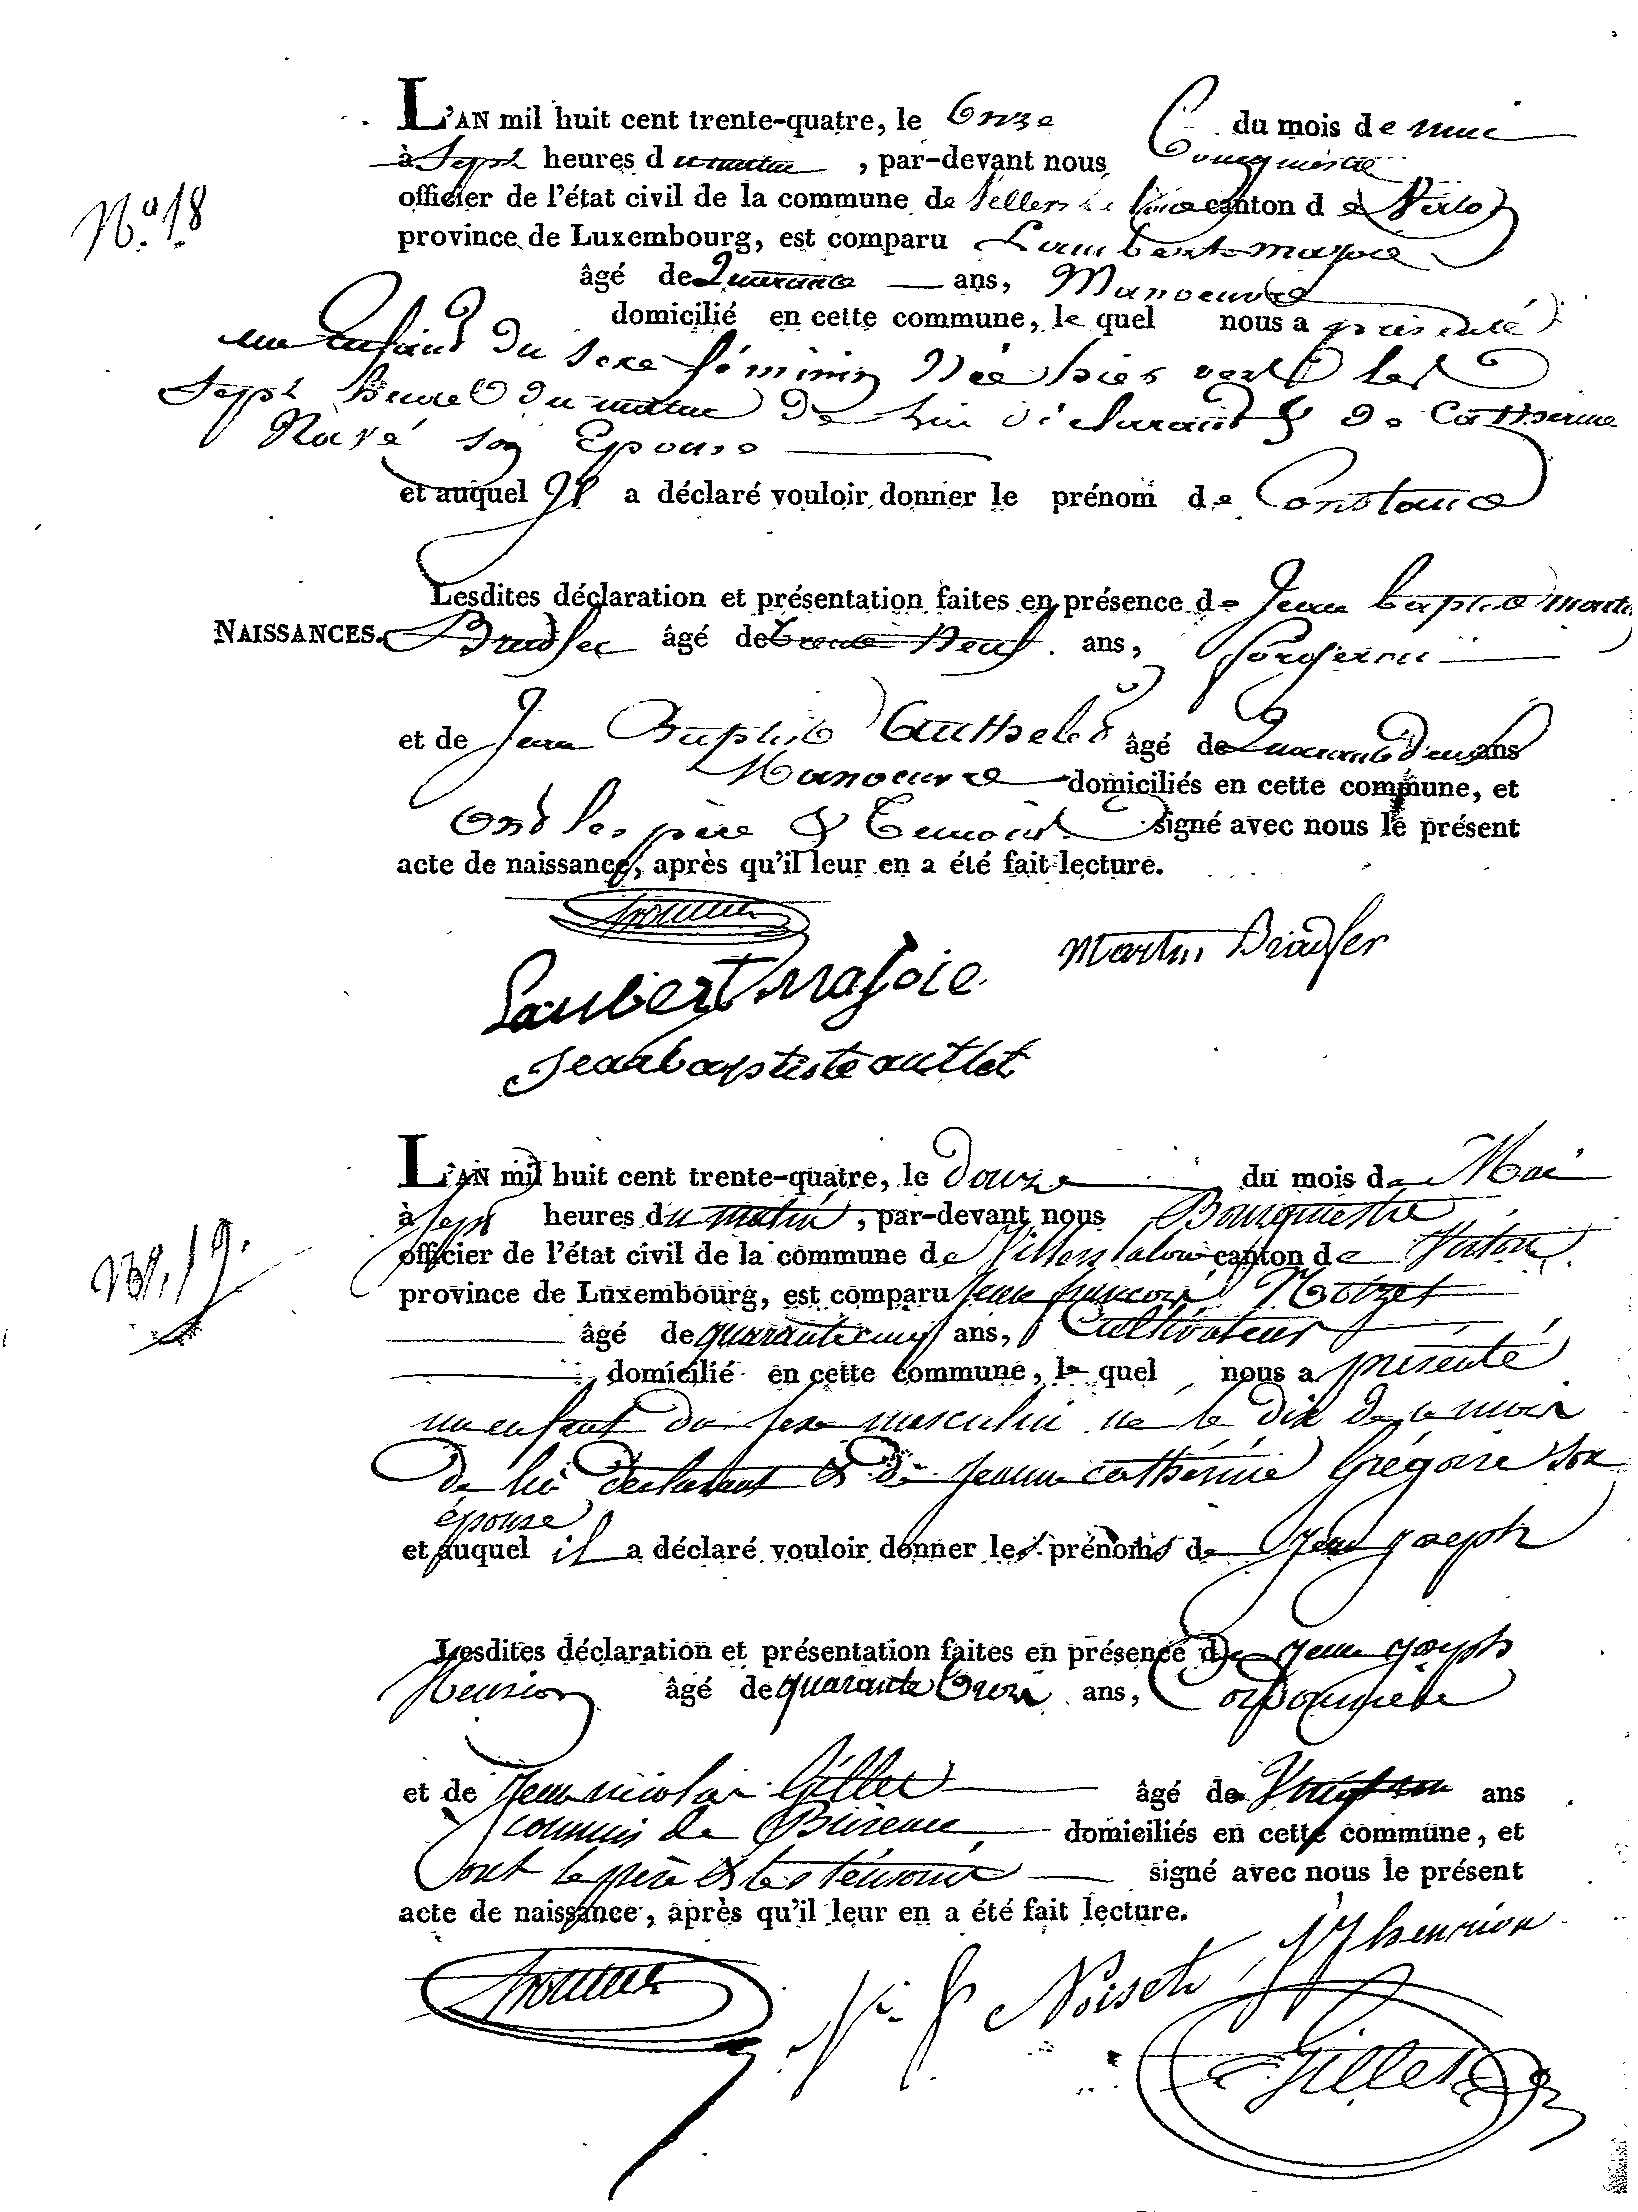 L'AN mil huit cent trente-quatre, le Onze du mois de mai
à Sept heures du matin, par-devant nous Bourguinia
officier de l'état civil de la commune de Villers la loue canton de Virton
province de Luxembourg, est comparu Lambert masoie
N.º 18
âgé de Quarante ans, Manoeuvre
domicilié en cette commune, le quel nous a présenté
un Enfant du sexe féminin Née hier vers les
Sept heures du matin De lui déclarant & de Catherine
Navé son Epouse
et auquel Il a déclaré vouloir donner le prénom de Constance
Lesdites déclaration et présentation faites en présence de Jean baptiste martin
NAISSANCES. Bradfer âgé de trente Neuf ans, forgeron
et de Jean Baptiste Authelet âgé de Quarante Deux ans
Manoeuvre domiciliés en cette commune, et
Ont les père & Temoins signé avec nous le présent
acte de naissance, après qu'il leur en a été fait lecture.
Martin Bradfer
Lambert masoie
Jean baptiste autlet
L'AN mil huit cent trente-quatre, le douze du mois de Mai
à Sept heures du matin, par-devant nous Bourguignon
officier de l'état civil de la commune de Villers laloue canton de Virton
Nº. 19.
province de Luxembourg, est comparu Jean françois Noizet
âgé de quarante cinq ans, Cultivateur
domicilié en cette commune, le quel nous a présenté
un enfant du sexe masculin né le dix de ce mois
de lui déclarant & de Jeanne catherine Grégoire son
épouse
et auquel il a déclaré vouloir donner les prénoms de Jean Joseph
Lesdites déclaration et présentation faites en présence de Jean Joseph
Henrion âgé de quarante trois ans, Cordonnier
et de Jean nicolas Gillet âgé de ans
commis de Bureau domiciliés en cette commune, et
ont le père & les témoins signé avec nous le présent
acte de naissance, après qu'il leur en a été fait lecture.
JJ henrion
Noiset
Gillet